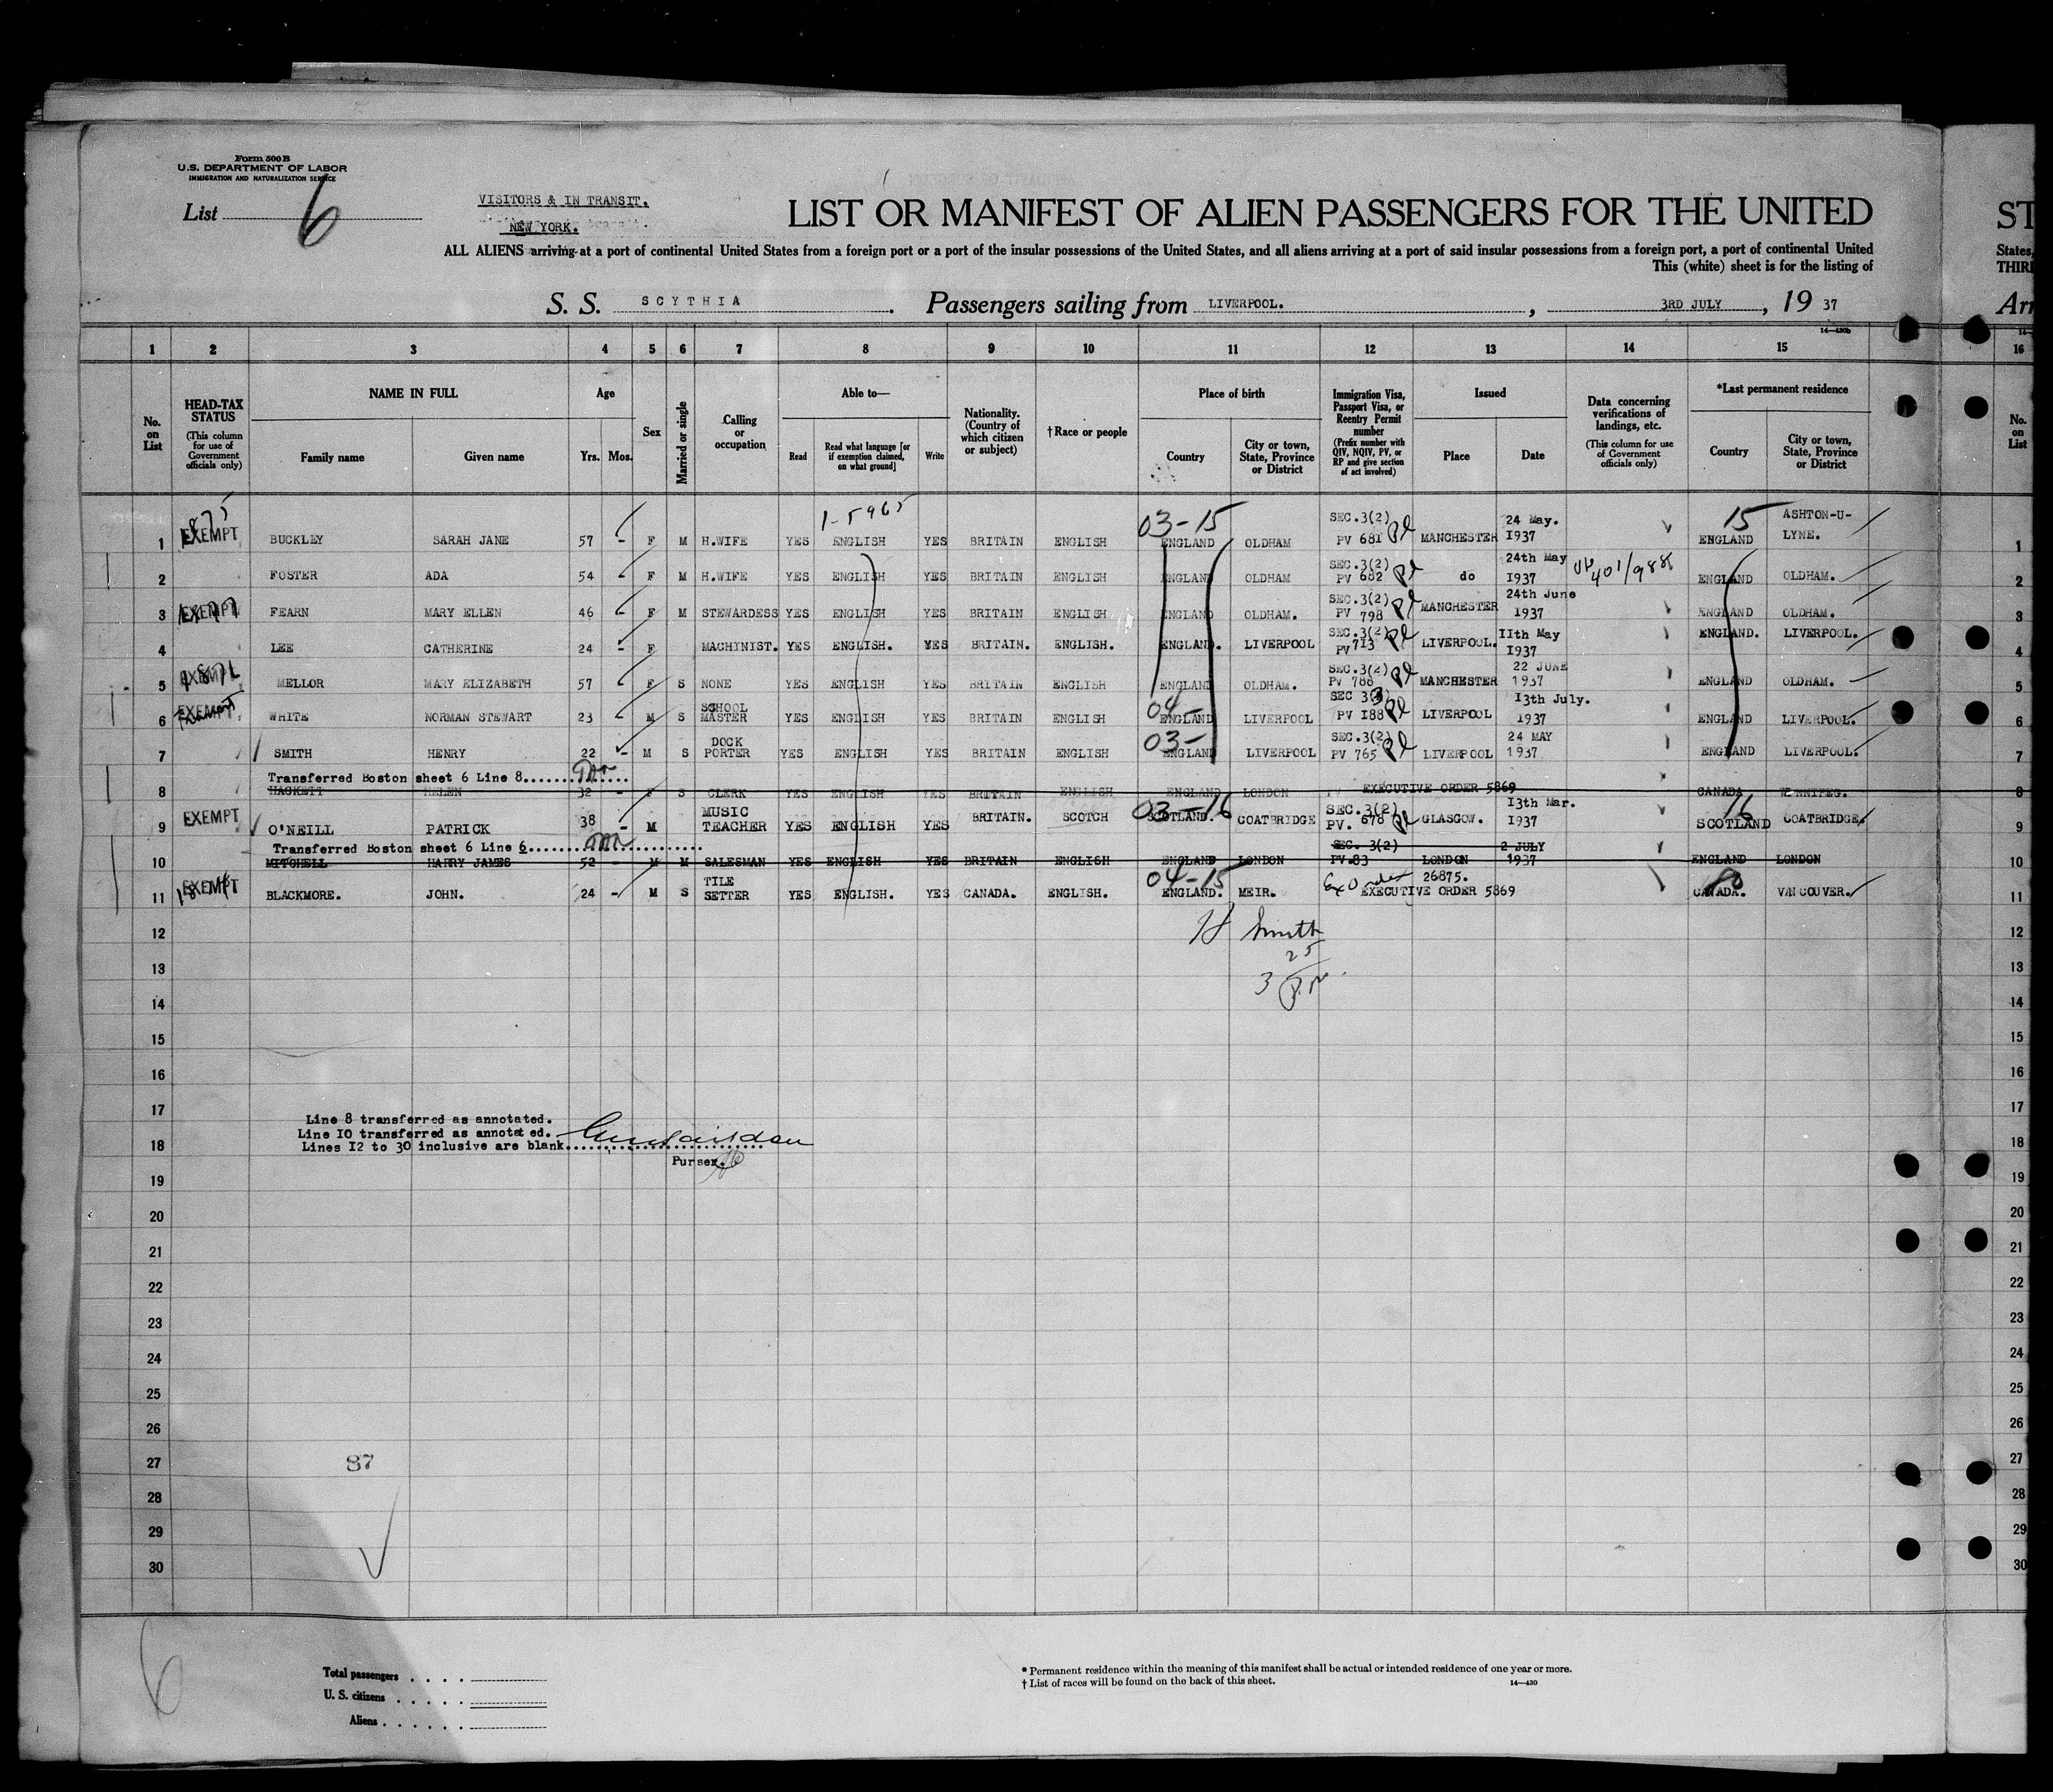 Form 500 B
U.S. DEPARTMENT OF LABOR
IMMIGRATION AND NATURALIZATION SERVICE
List 6
VISITORS & IN TRANSIT.
NEW YORK.
LIST OR MANIFEST OF ALIEN PASSENGERS FOR THE UNITED
ST
ALL ALIENS arriving at a port of continental United States from a foreign port or a port of the insular possessions of the United States, and all aliens arriving at a port of said insular possessions from a foreign port, a port of continental United
States,
This (white) sheet is for the listing of
THIR
S. S. SCYTHIA. Passengers sailing from LIVERPOOL., 3RD JULY, 19 37
Arr
14—430b
1 2 3 4 5 6 7 8 9 10 11 12 13 14 15 16
No. on List
HEAD-TAX STATUS (This column for use of Government officials only)
NAME IN FULL
Family name
Given name
Age
Yrs. Mos.
Sex
Married or single
Calling or occupation
Able to—
Read
Read what language [or if exemption claimed, on what ground]
Write
Nationality. (Country of which citizen or subject)
† Race or people
Place of birth
Country
City or town, State, Province or District
Immigration Visa, Passport Visa, or Reentry Permit number (Prefix number with QIV, NQIV, PV, or RP and give section of act involved)
Issued
Place
Date
Data concerning verifications of landings, etc. (This column for use of Government officials only)
*Last permanent residence
Country
City or town, State, Province or District
No. on List
1-5965
03-15
15
1 EXEMPT BUCKLEY SARAH JANE 57 - F M H.WIFE YES ENGLISH YES BRITAIN ENGLISH ENGLAND OLDHAM SEC.3(2) PV 681 MANCHESTER 24 May. I937 ENGLAND ASHTON-U-LYNE. 1
2 FOSTER ADA 54 - F M H.WIFE YES ENGLISH YES BRITAIN ENGLISH ENGLAND OLDHAM SEC.3(2) PV 682 do 24th May I937 401/988 ENGLAND OLDHAM. 2
3 EXEMPT FEARN MARY ELLEN 46 - F M STEWARDESS YES ENGLISH YES BRITAIN ENGLISH ENGLAND OLDHAM. SEC.3(2) PV 798 MANCHESTER 24th June 1937 ENGLAND OLDHAM. 3
4 LEE CATHERINE 24 - F MACHINIST. YES ENGLISH. YES BRITAIN. ENGLISH. ENGLAND. LIVERPOOL SEC.3(2) PV 713 LIVERPOOL. IIth May I937 ENGLAND. LIVERPOOL. 4
5 EXEMPT MELLOR MARY ELIZABETH 57 - F S NONE YES ENGLISH YES BRITAIN ENGLISH ENGLAND OLDHAM. SEC.3(2) PV 788 MANCHESTER 22 JUNE 1937 ENGLAND OLDHAM. 5
04-
6 EXEMPT WHITE NORMAN STEWART 23 - M S SCHOOL MASTER YES ENGLISH YES BRITAIN ENGLISH ENGLAND LIVERPOOL SEC 3(3) PV I88 LIVERPOOL I3th July. 1937 ENGLAND LIVERPOOL. 6
03-
7 SMITH HENRY 22 - M S DOCK PORTER YES ENGLISH YES BRITAIN ENGLISH ENGLAND LIVERPOOL SEC.3(2) PV 765 LIVERPOOL 24 MAY 1937 ENGLAND LIVERPOOL. 7
Transferred Boston sheet 6 Line 8
8 HACKETT HELEN 32 - F S CLERK YES ENGLISH YES BRITAIN ENGLISH ENGLAND LONDON EXECUTIVE ORDER 5869 CANADA WINNIPEG. 8
03-16
16
9 EXEMPT O'NEILL PATRICK 38 - M MUSIC TEACHER YES ENGLISH YES BRITAIN. SCOTCH SCOTLAND. COATBRIDGE SEC.3(2) PV. 678 GLASGOW. I3th Mar. I937 SCOTLAND COATBRIDGE. 9
Transferred Boston sheet 6 Line 6
10 MITCHELL HARRY JAMES 52 - M M SALESMAN YES ENGLISH YES BRITAIN ENGLISH ENGLAND LONDON SEC. 3(2) PV.83 LONDON 2 JULY 1937 ENGLAND LONDON 10
04-15
11 EXEMPT BLACKMORE. JOHN. 24 - M S TILE SETTER YES ENGLISH. YES CANADA. ENGLISH. ENGLAND. MEIR. Ex Order 26875. EXECUTIVE ORDER 5869 CANADA. VANCOUVER. 11
12 H Smith 12
25
13 13
3
14 14
15 15
16 16
17 17
Line 8 transferred as annotated.
Line IO transferred as annotated.
18 Lines I2 to 30 inclusive are blank 18
Purser.
19 19
20 20
21 21
22 22
23 23
24 24
25 25
26 26
27 87 27
28 28
29 29
30 30
6
Total passengers
U. S. citizens
Aliens
* Permanent residence within the meaning of this manifest shall be actual or intended residence of one year or more.
† List of races will be found on the back of this sheet.
14—430